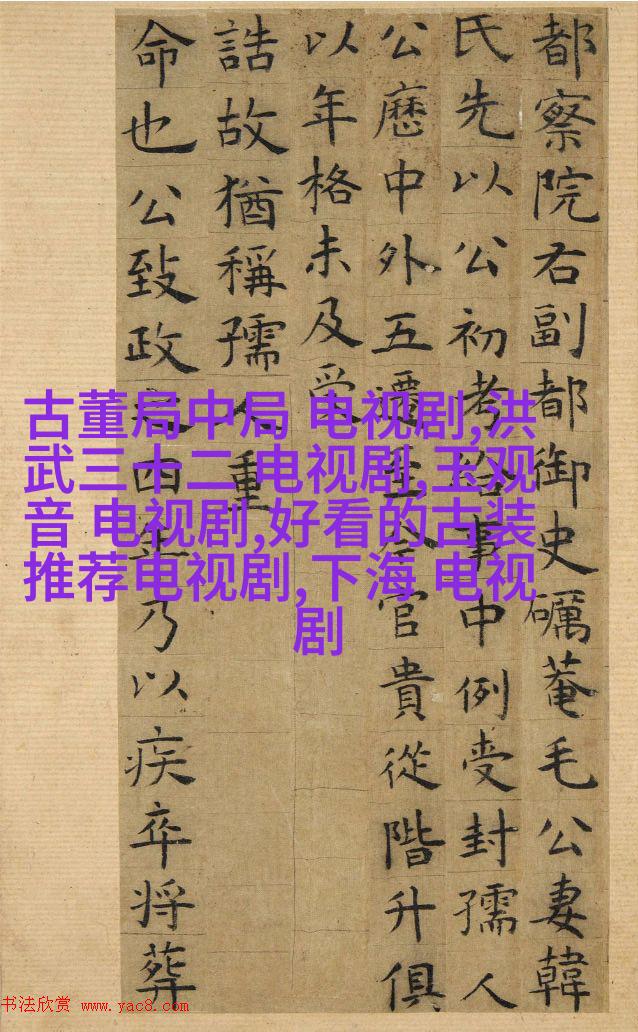 都察院右副都御史礪菴毛公妻韓
氏先以公初考給事中例受封孺人
公歷中外五遷至今官貴從階升俱
以年格未及受
誥故猶稱孺人重
命也公致政四年乃以疾卒將葬
古董局中局 电视剧,洪
武三十二 电视剧,玉观
音 电视剧,好看的古装
推荐电视剧,下海 电视
剧
书法欣赏 www.yac8.com